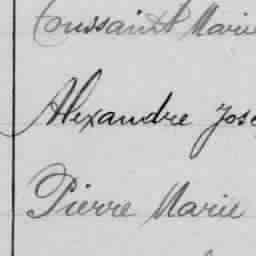 Toussaint Marie
Alexandre Jose
Pierre Marie